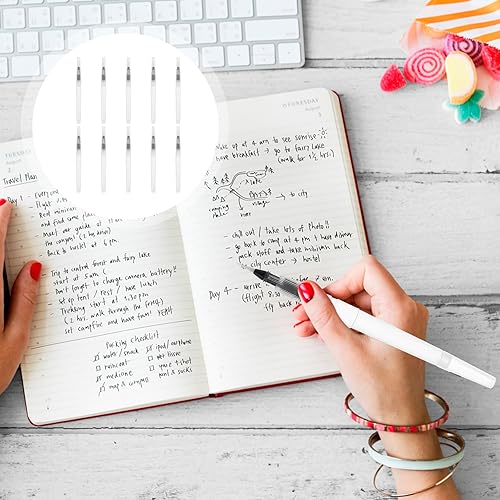 August
2
Travel Plan
Day 1 - Everyone
- flight
and find some place
meet our guide at
the campsite (2 hrs away)
- Back to hotel at 6 pm
- Trip to central forest and fairy lake
start at 5 am
- Don't forget to charge camera, battery!!
- set up tent / rest / have lunch
- Trekking start at 1.30 pm
(2 hrs. walk through the forest)
- set campfire and have fun! YEAH
Packing checklist
water / snack
raincoat
medicine
map & compass
ipod / earphone
wet tissue
yoga t-shirt
pant & socks
WEDNESDAY
August
3
- wake up at 4 am to see sunrise
- have breakfast → go to fairy lake
(walk for 1 ½ hrs)
lake
camping
village
river
→ to city
- chill out / take lots of photo!!
- go back to camp at 4 pm & have dinner
- pack stuff and take minibus back
to city center → hostel
Day 4 - arrive
(flight 8.30
fly back